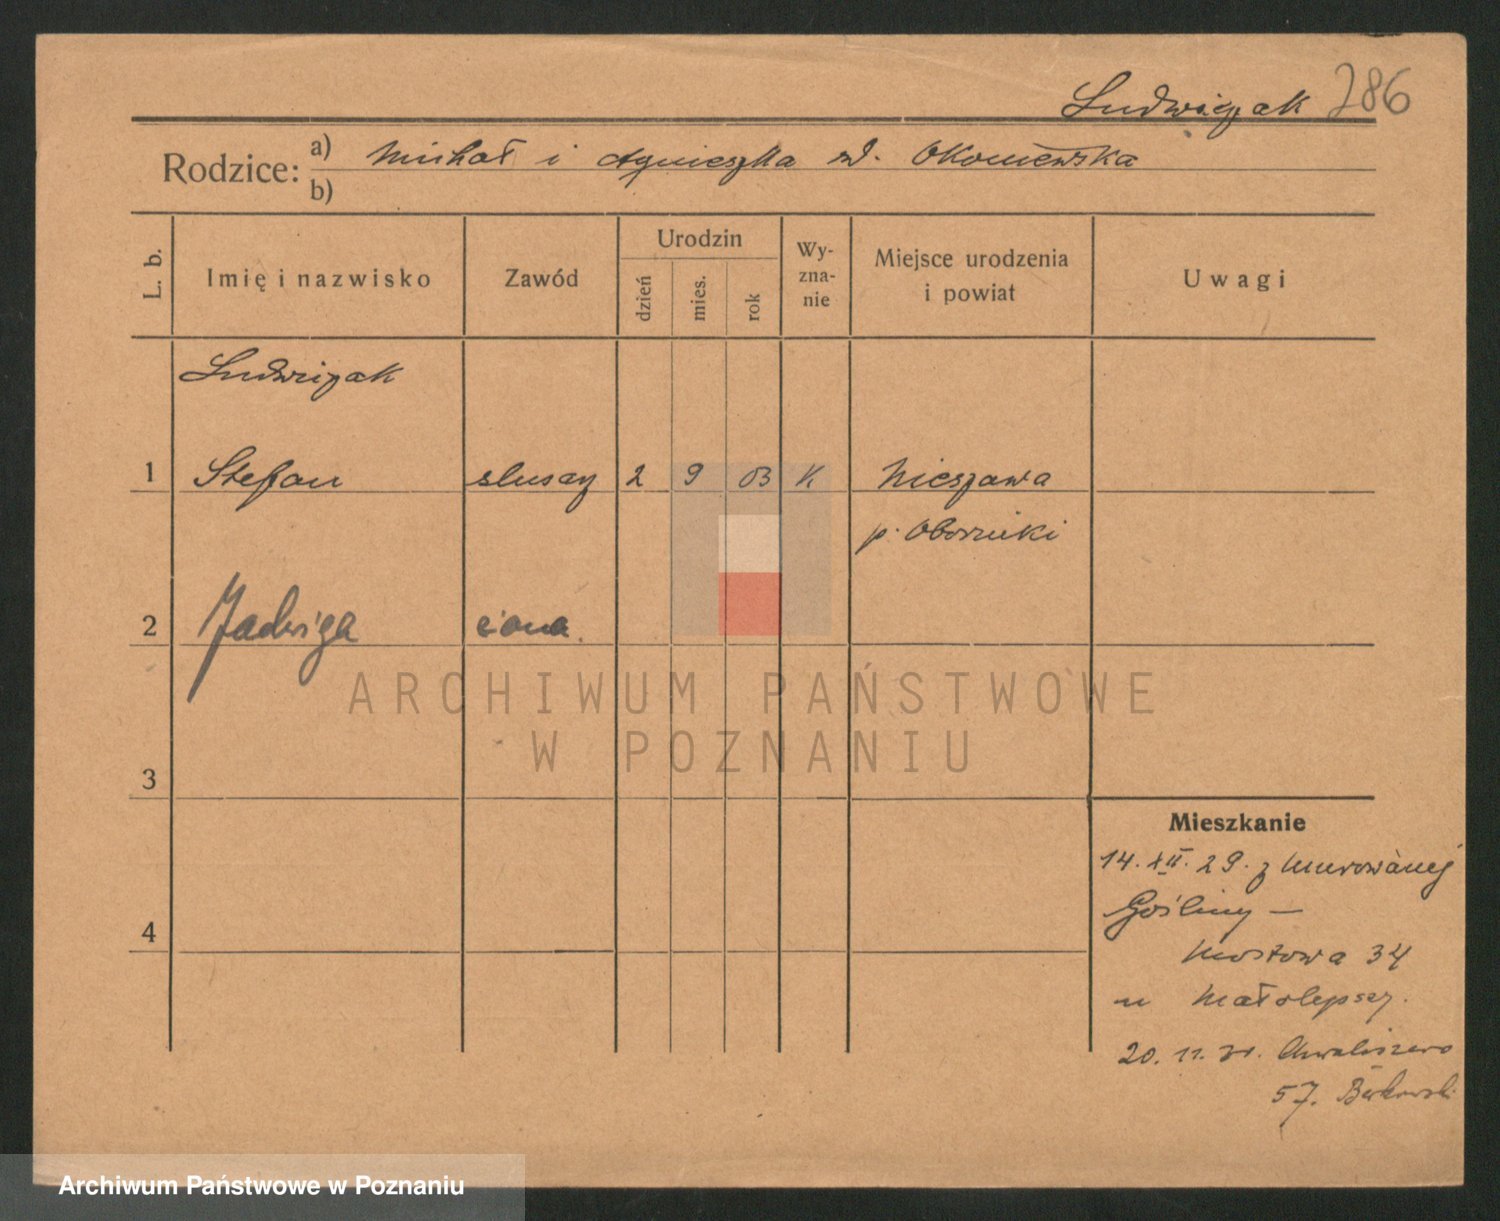 Ludwiczak 286
Rodzice: a) Michał i Agnieszka zd. Okoniewska
b)
L. b.
Imię i nazwisko
Zawód
Urodzin
dzień
mies.
rok
Wy-
zna-
nie
Miejsce urodzenia
i powiat
Uwagi
Ludwiczak
1 Stefan 2 9 03 K Nieszawa
p. Oborniki
2 Jadwiga żona.
ARCHIWUM PAŃSTWOWE
W POZNANIU
3
4
Mieszkanie
14. XII. 29. z Murowanej
Gośliny —
Mostowa 34
u Małolepszy.
20. 11. 31. Chwaliszewo
57.
Archiwum Państwowe w Poznaniu